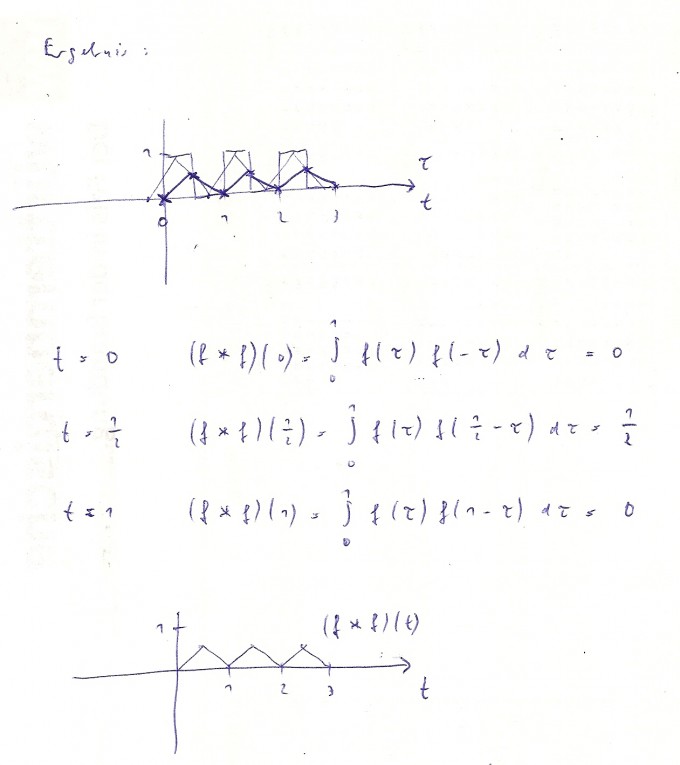 Ergebnis:
1
τ
t
0 1 2 3
t = 0 (f * f)(0) = ∫₀¹ f(τ) f(-τ) dτ = 0
t = 1/2 (f * f)(1/2) = ∫₀¹ f(τ) f(1/2 - τ) dτ = 1/2
t = 1 (f * f)(1) = ∫₀¹ f(τ) f(1 - τ) dτ = 0
1 (f * f)(t)
1 2 3 t